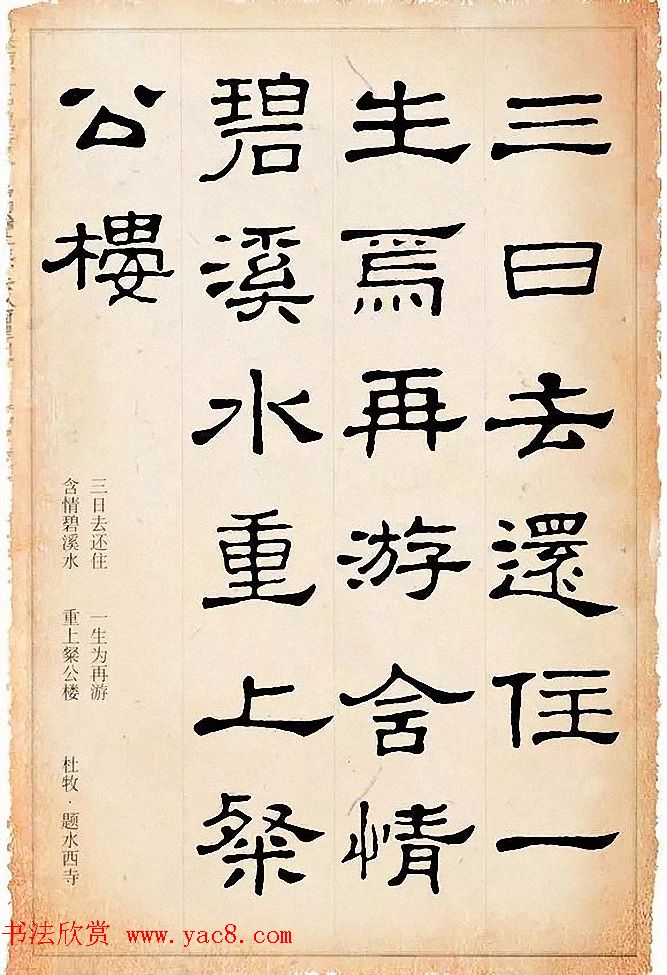 三日去還住一
生焉再游含情
碧溪水重上粲
公樓
三日去还住 一生为再游
含情碧溪水 重上粲公楼 杜牧·题水西寺
书法欣赏 www.yac8.com